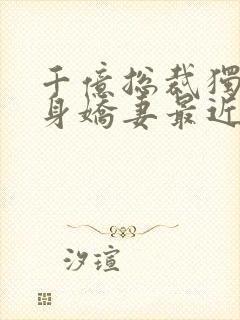 千億總裁獨
身嬌妻最近
汐瑄